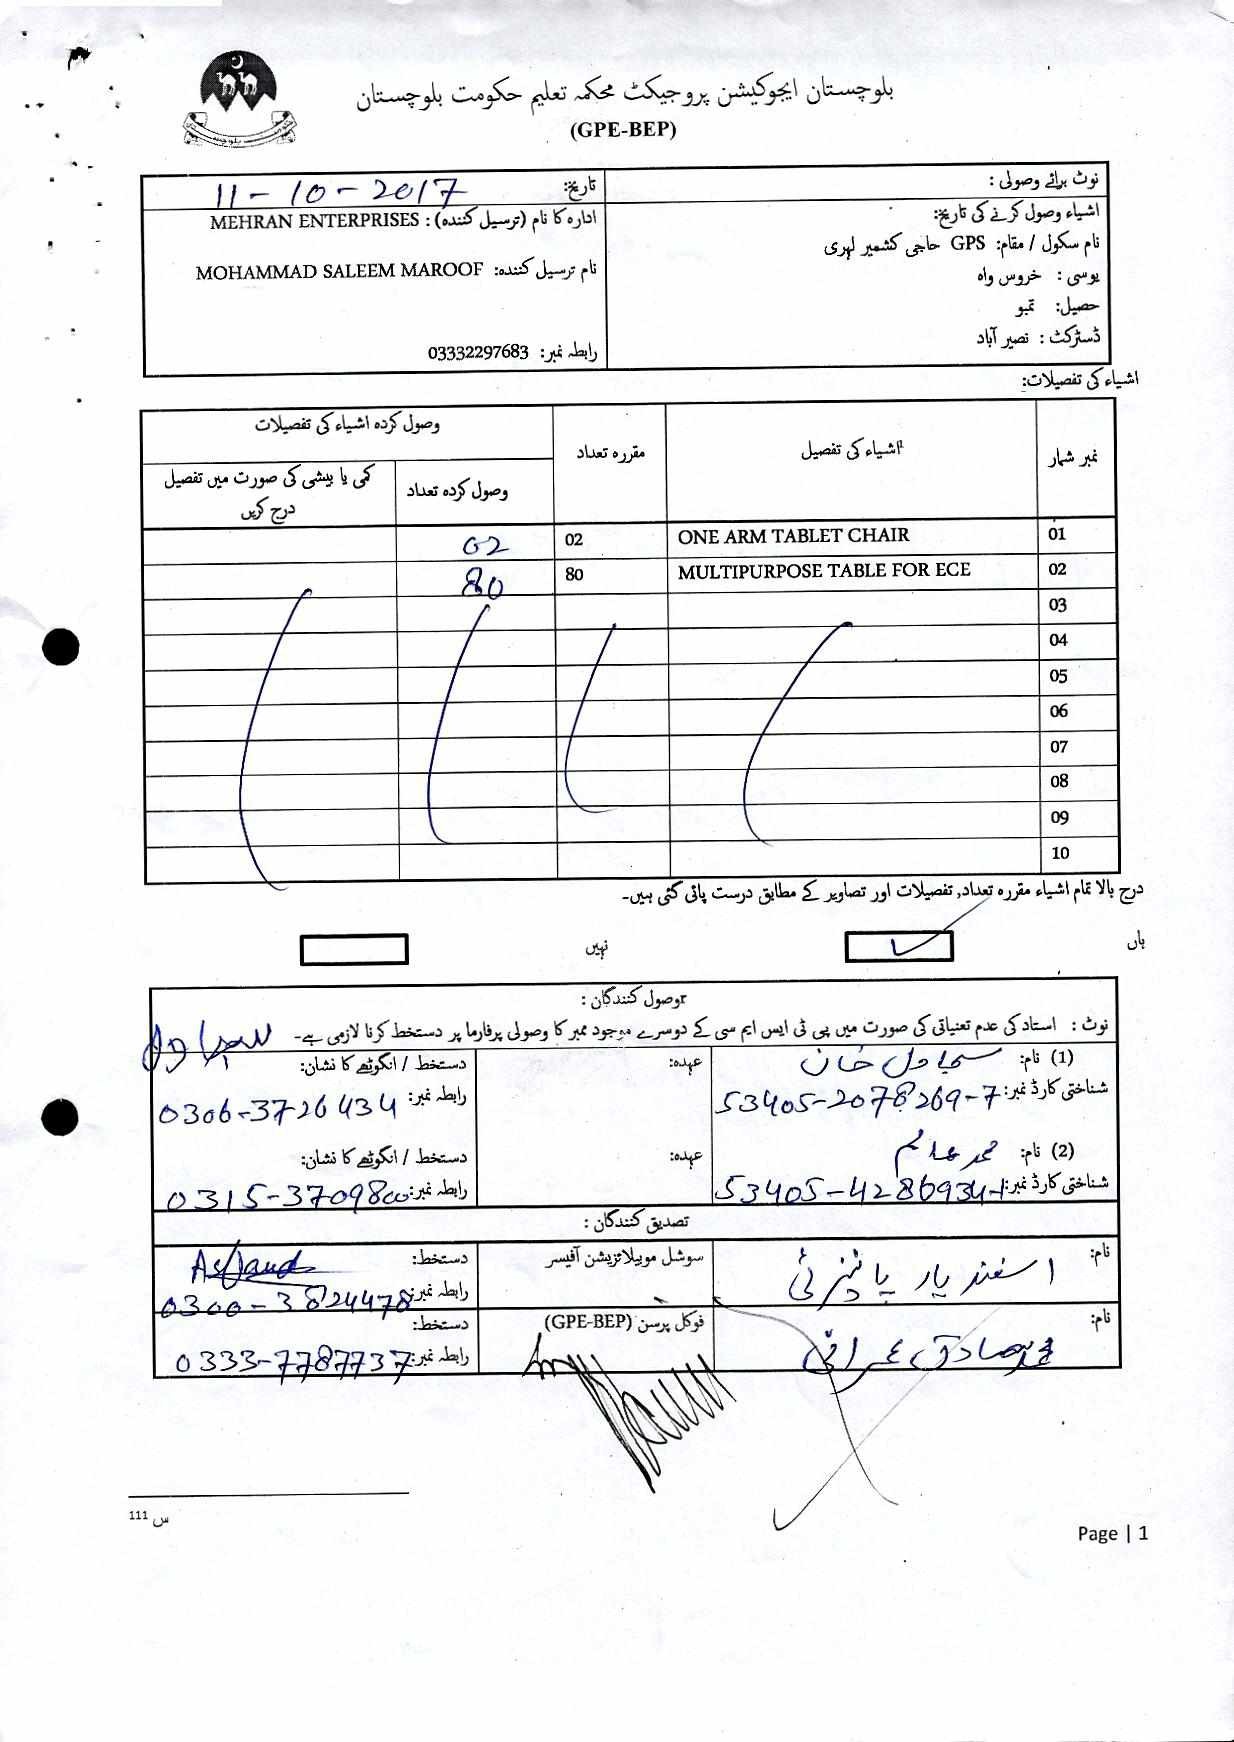 بلوچستان ایجوکیشن پروجیکٹ محکمہ تعلیم حکومت بلوچستان
(GPE-BEP)
نوٹ برائے وصولی :
اشیاء وصول کرنے کی تاریخ:
نام سکول / مقام: GPS حاجی کشمیر لہری
یوسی : خروس واہ
حصیل: تمبو
ڈسٹرکٹ : نصیر آباد
تاریخ: 11-10-2017
ادارہ کا نام (ترسیل کنندہ) : MEHRAN ENTERPRISES
نام ترسیل کنندہ: MOHAMMAD SALEEM MAROOF
رابطہ نمبر: 03332297683
اشیاء کی تفصیلات:
نمبر شمار اشیاء کی تفصیل مقررہ تعداد وصول کردہ اشیاء کی تفصیلات
وصول کردہ تعداد کمی یا بیشی کی صورت میں تفصیل درج کریں
01 ONE ARM TABLET CHAIR 02 02
02 MULTIPURPOSE TABLE FOR ECE 80 80
03
04
05
06
07
08
09
10
درج بالا تمام اشیاء مقررہ تعداد, تفصیلات اور تصاویر کے مطابق درست پائی گئی ہیں۔
ہاں نہیں
وصول کنندگان :
نوٹ : استاد کی عدم تعنیاتی کی صورت میں پی ٹی ایس ایم سی کے دوسرے موجود ممبر کا وصولی پرفارما پر دستخط کرنا لازمی ہے۔
(1) نام: سجاول خان عہدہ: دستخط / انگوٹھے کا نشان:
شناختی کارڈ نمبر: 53405-2078269-7 رابطہ نمبر: 0306-3726434
(2) نام: محمد عالم عہدہ: دستخط / انگوٹھے کا نشان:
شناختی کارڈ نمبر: رابطہ نمبر:
تصدیق کنندگان :
نام: اسفند یار سوشل موبیلائزیشن آفیسر دستخط:
رابطہ نمبر: 0300-3824478
نام: محمد صادق عمرانی فوکل پرسن (GPE-BEP) دستخط:
رابطہ نمبر: 0333-7787737
س 111
Page | 1